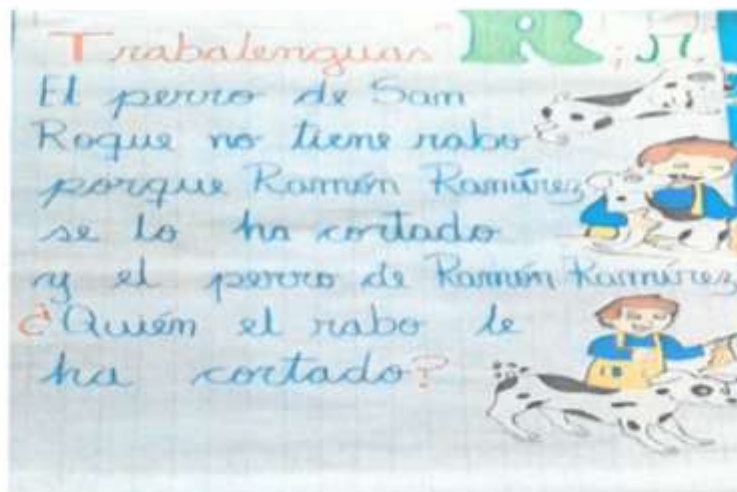 Trabalenguas R; r
El perro de San
Roque no tiene rabo
porque Ramón Ramírez
se lo ha cortado
y el perro de Ramón Ramírez
¿Quién el rabo le
ha cortado?